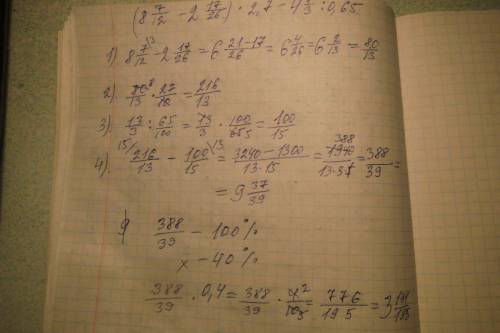 (8 7/12 − 2 17/26) · 2,7 − 4 1/3 : 0,65.
1) 8 7/12 − 2 17/26 = 6 21−17/26 = 6 4/26 = 6 2/13 = 80/13
2). 80/13 · 27/10 = 216/13
3). 13/3 : 65/100 = 13/3 · 100/65 = 100/15
4). 216/13 − 100/15 = 3240 − 1300/13·15 = 1940/13·3 = 388/39 =
= 9 37/39
388/39 − 100%
x − 40%
388/39 · 0,4 = 388/39 · 2/5 = 776/195 = 3 191/195